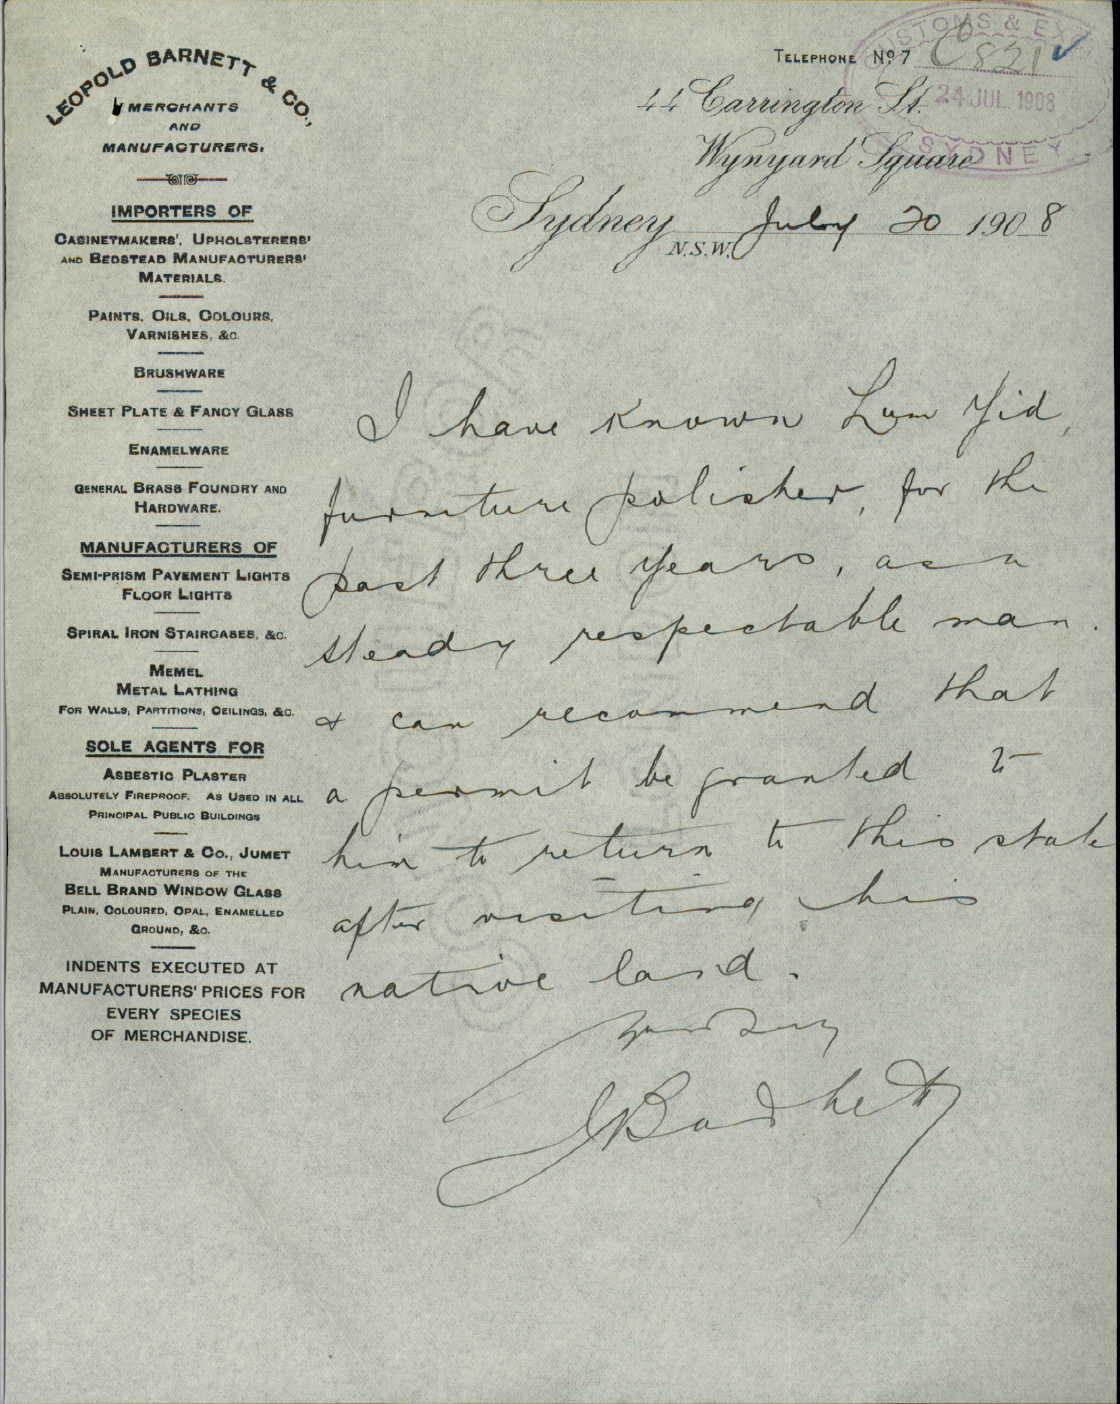 LEOPOLD BARNETT & CO.,
MERCHANTS
AND
MANUFACTURERS.
IMPORTERS OF
CABINETMAKERS', UPHOLSTERERS'
AND BEDSTEAD MANUFACTURERS'
MATERIALS.
PAINTS, OILS, COLOURS,
VARNISHES, &C.
BRUSHWARE
SHEET PLATE & FANCY GLASS
ENAMELWARE
GENERAL BRASS FOUNDRY AND
HARDWARE.
MANUFACTURERS OF
SEMI-PRISM PAVEMENT LIGHTS
FLOOR LIGHTS
SPIRAL IRON STAIRCASES, &C.
MEMEL
METAL LATHING
FOR WALLS, PARTITIONS, CEILINGS, &C.
SOLE AGENTS FOR
ASBESTIC PLASTER
ABSOLUTELY FIREPROOF. AS USED IN ALL
PRINCIPAL PUBLIC BUILDINGS
LOUIS LAMBERT & CO., JUMET
MANUFACTURERS OF THE
BELL BRAND WINDOW GLASS
PLAIN, COLOURED, OPAL, ENAMELLED
GROUND, &C.
INDENTS EXECUTED AT
MANUFACTURERS' PRICES FOR
EVERY SPECIES
OF MERCHANDISE.
TELEPHONE No 7
C8821
CUSTOMS & EX
24 JUL 1908
SYDNEY
44 Carrington St.
Wynyard Square
Sydney July 20 1908
N.S.W.
I have known Lum Yid,
furniture polisher, for the
past three years, as a
steady respectable man.
& can recommend that
a permit be granted to
him to return to this state
after visiting his
native land.
Yours truly